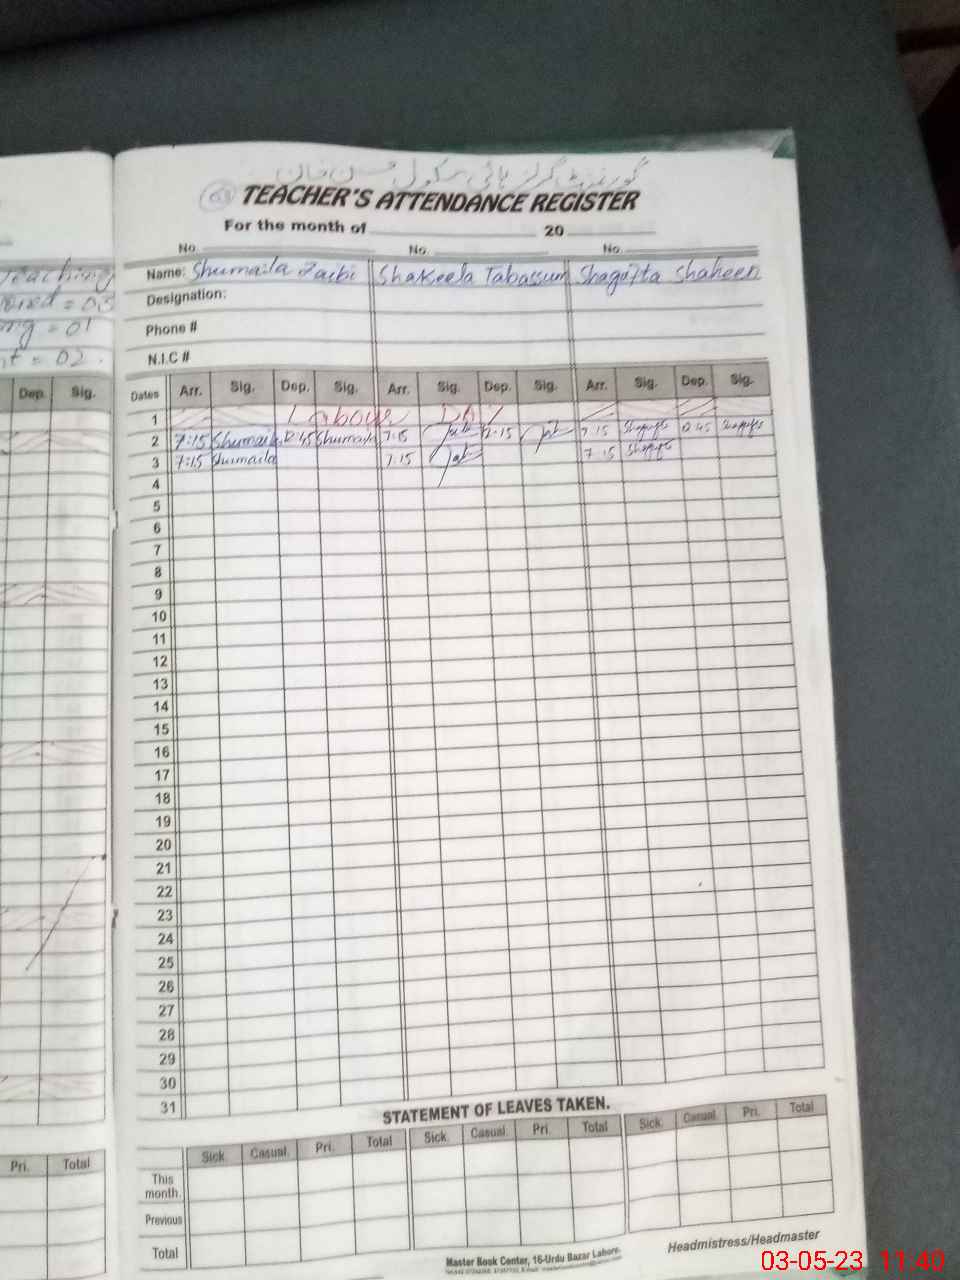 گورنمنٹ گرلز ہائی سکول حسن خان
TEACHER'S ATTENDANCE REGISTER
For the month of 20
No. No. No.
Name: Shumaila Zaibi Shakeela Tabassum Shagufta Shaheen
Designation:
Phone #
N.I.C #
Teaching
= 03
= 01
= 02.
Dep. Sig.
Dates Arr. Sig. Dep. Sig. Arr. Sig. Dep. Sig. Arr. Sig. Dep. Sig.
1 Labour DAY
2 7:15 Shumaila 12:45 Shumaila 7:15 12:15 7:15 12:45
3 7:15 Shumaila 7:15 7:15
4
5
6
7
8
9
10
11
12
13
14
15
16
17
18
19
20
21
22
23
24
25
26
27
28
29
30
31
STATEMENT OF LEAVES TAKEN.
Pri. Total
Sick. Casual. Pri. Total Sick. Casual. Pri. Total Sick. Casual. Pri. Total
This month.
Previous
Total
Master Book Center, 16-Urdu Bazar Lahore.
Headmistress/Headmaster
03-05-23 11:40